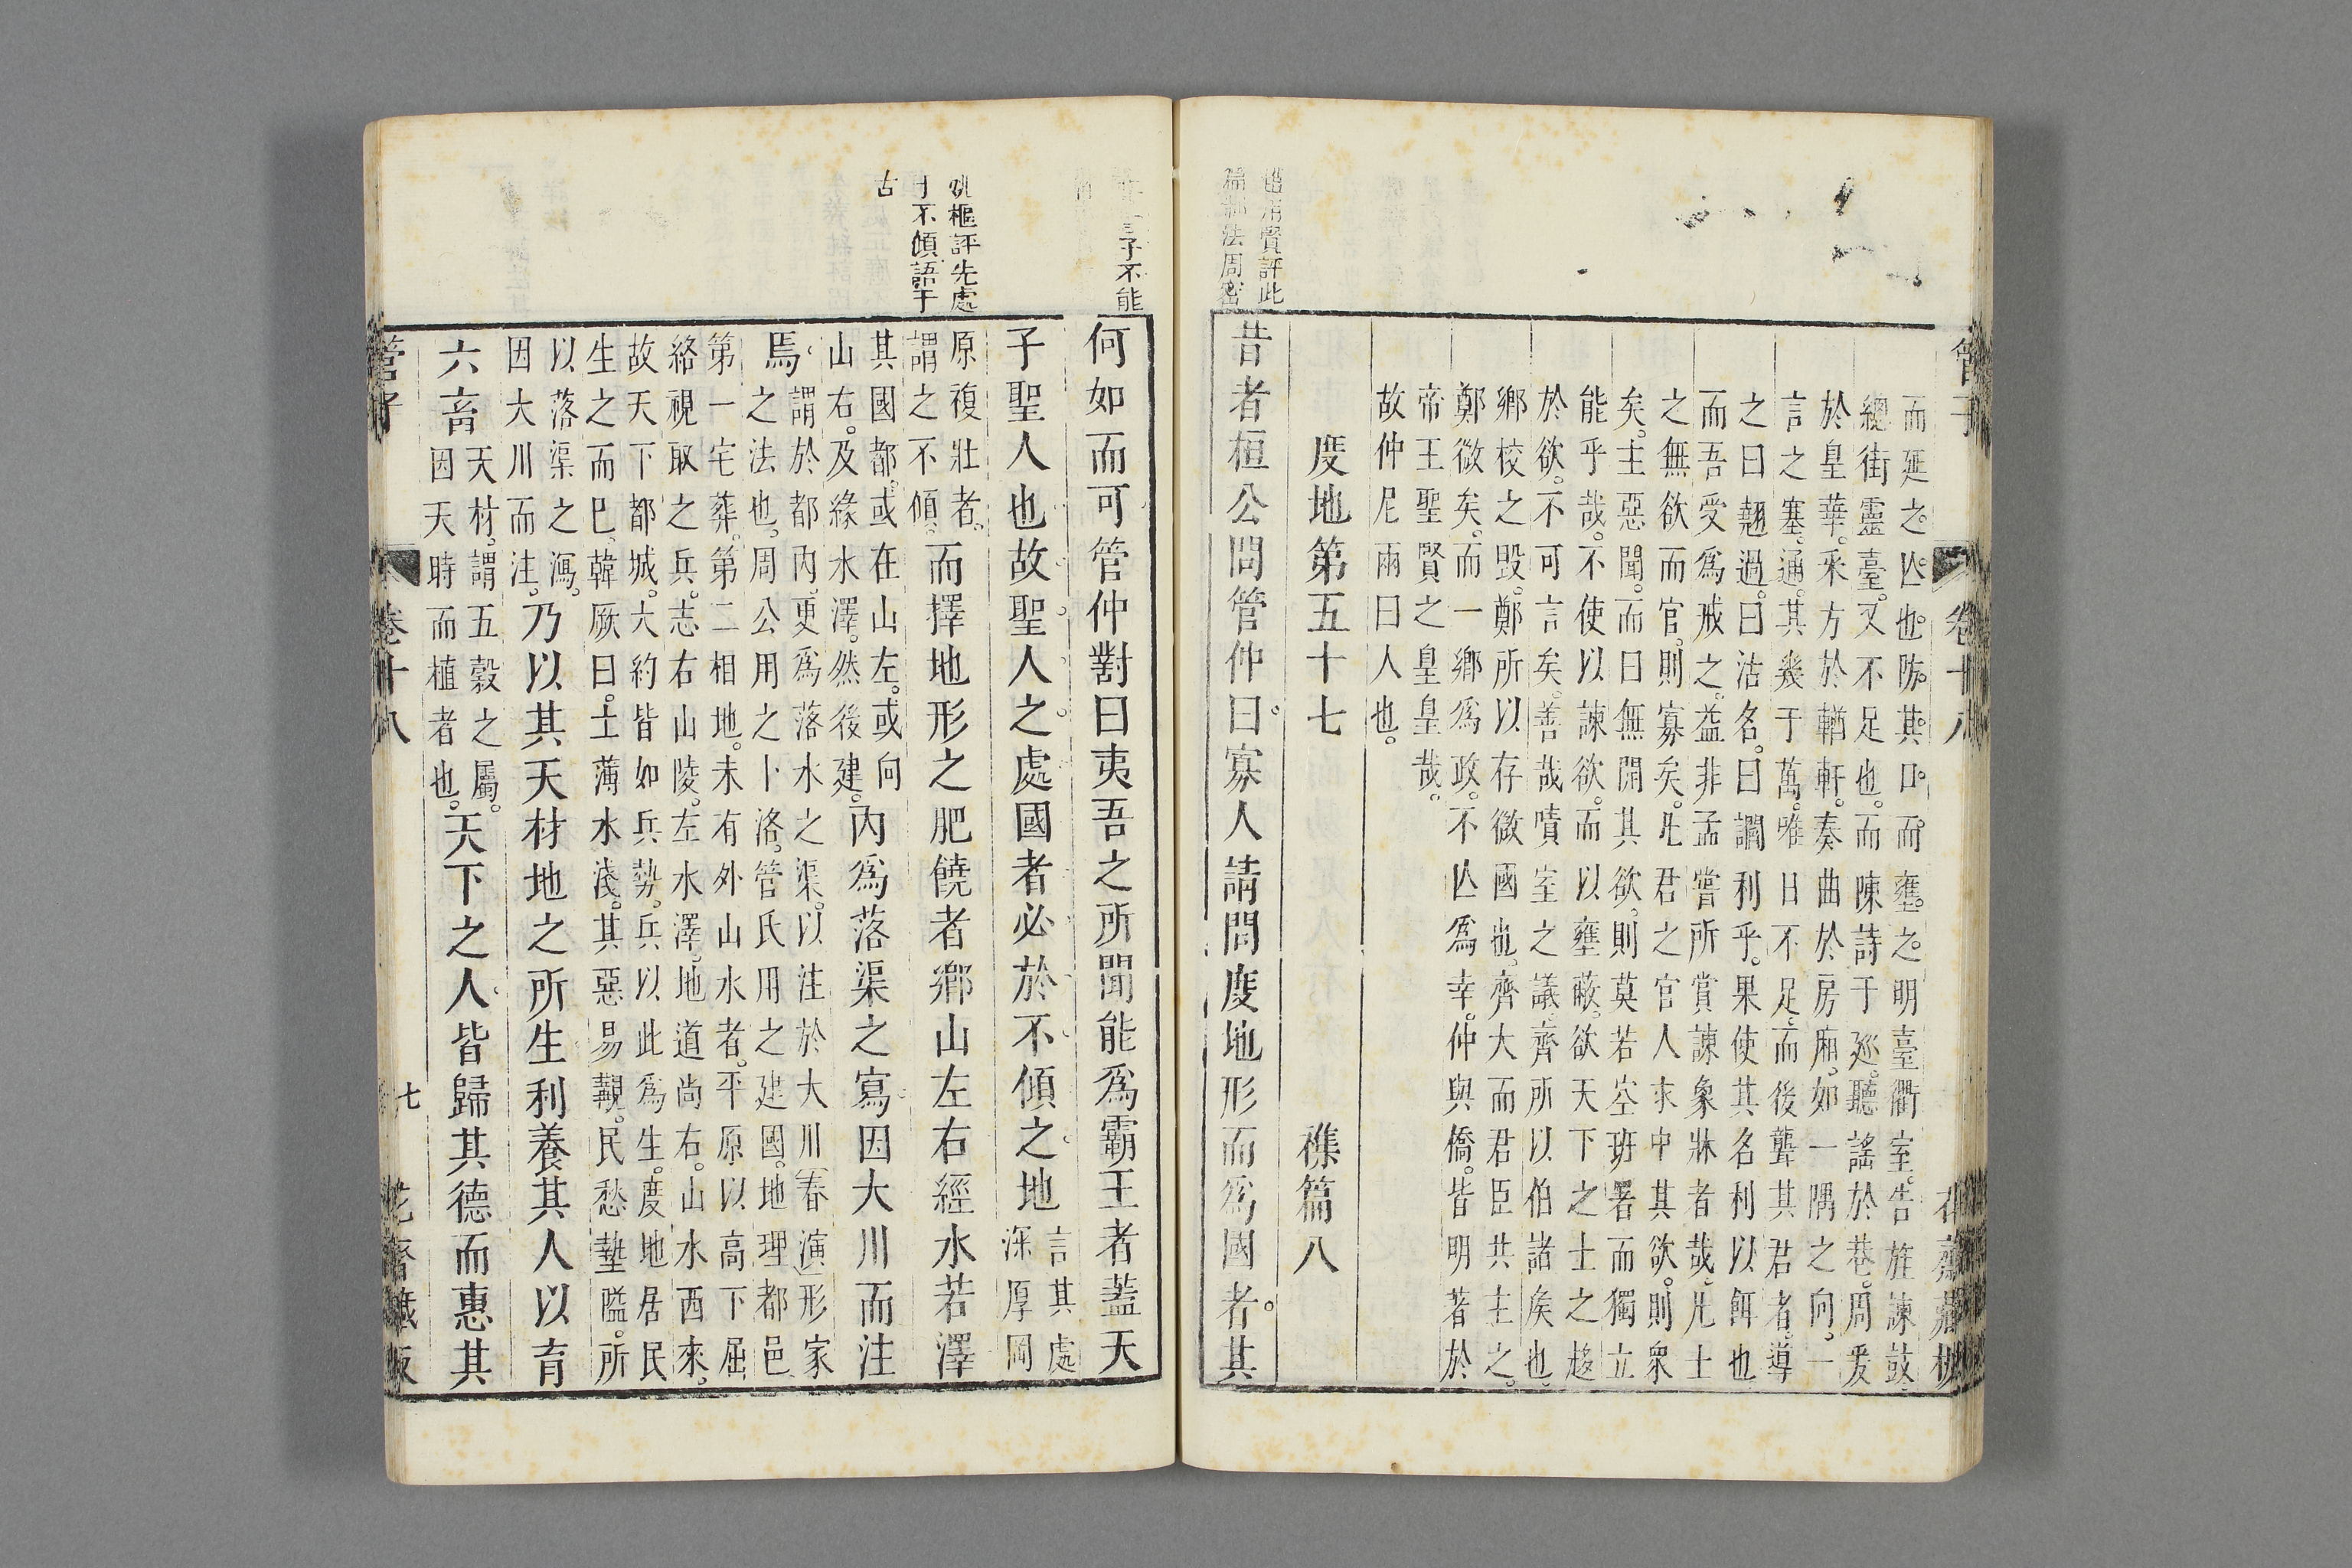 管子 卷十八 花齋藏板
而延之。亾也。防。其。口。而。壅。之。明臺衢室。告旌諫鼓。
總街靈臺。又不足也。而陳詩于廵。聽謠於巷。周爰
於皇華。釆方於輶軒。奏曲於房廂。如一隅之向。一
言之塞。通。其幾于萬。唯日不足。而後聾其君者。導
之曰翹過。曰沽名。曰調利乎。果使其名利以餌也
而吾受爲戒之。益非孟嘗所賞諫象牀者哉。凡士
之無欲而官。則寡矣。凡君之官人求中其欲。則衆
矣。主惡聞。而曰無開其欲。則莫若空班署而獨立
能乎哉。不使以諫欲。而以壅蔽。欲天下之士之趍
於欲。不可言矣。善哉嘖室之議。齊所以伯諸矦也。
鄉校之毀。鄭所以存微國也。齊大而君臣共主之。
鄭微矣。而一鄉爲政。不亾爲幸。仲與僑。皆明著於
帝王聖賢之皇皇哉。
故仲尼兩曰人也。
度地第五十七 襍篇八
賢評此
法周密
昔者桓公問管仲曰。寡人請問度地形而爲國者。其
子不能
何如而可管仲對曰夷吾之所聞能爲霸王者蓋天
子聖人也故聖人之處國者必於不傾之地 言其處
深厚岡
樞評先處
不傾語于
古
原複壯者。
謂之不傾。
而擇地形之肥饒者鄉山左右經水若澤
其國都。或在山左。或向
山右。及緣水澤。然後建。
內爲落渠之寫因大川而注
焉。
謂於都內。更爲落水之渠。以注於大川 春演形家
之法也。周公用之卜洛。管氏用之建國。地理都邑
第一宅葬。第二相地。未有外山水者。平原以高下屈
絡視取之兵。志右山陵。左水澤。地道尚右。山水西來。
故天下都城。大約皆如兵勢。兵以此爲生。度地居民
生之而巳。韓厥曰。土薄水淺。其惡易覯。民愁墊隘。所
以落渠之瀉。
因大川而注。
乃以其天材地之所生利養其人以育
六畜
天材。謂五穀之屬。
因天時而植者也。
天下之人。皆歸其德而惠其
管子 卷十八 七 花齋藏板